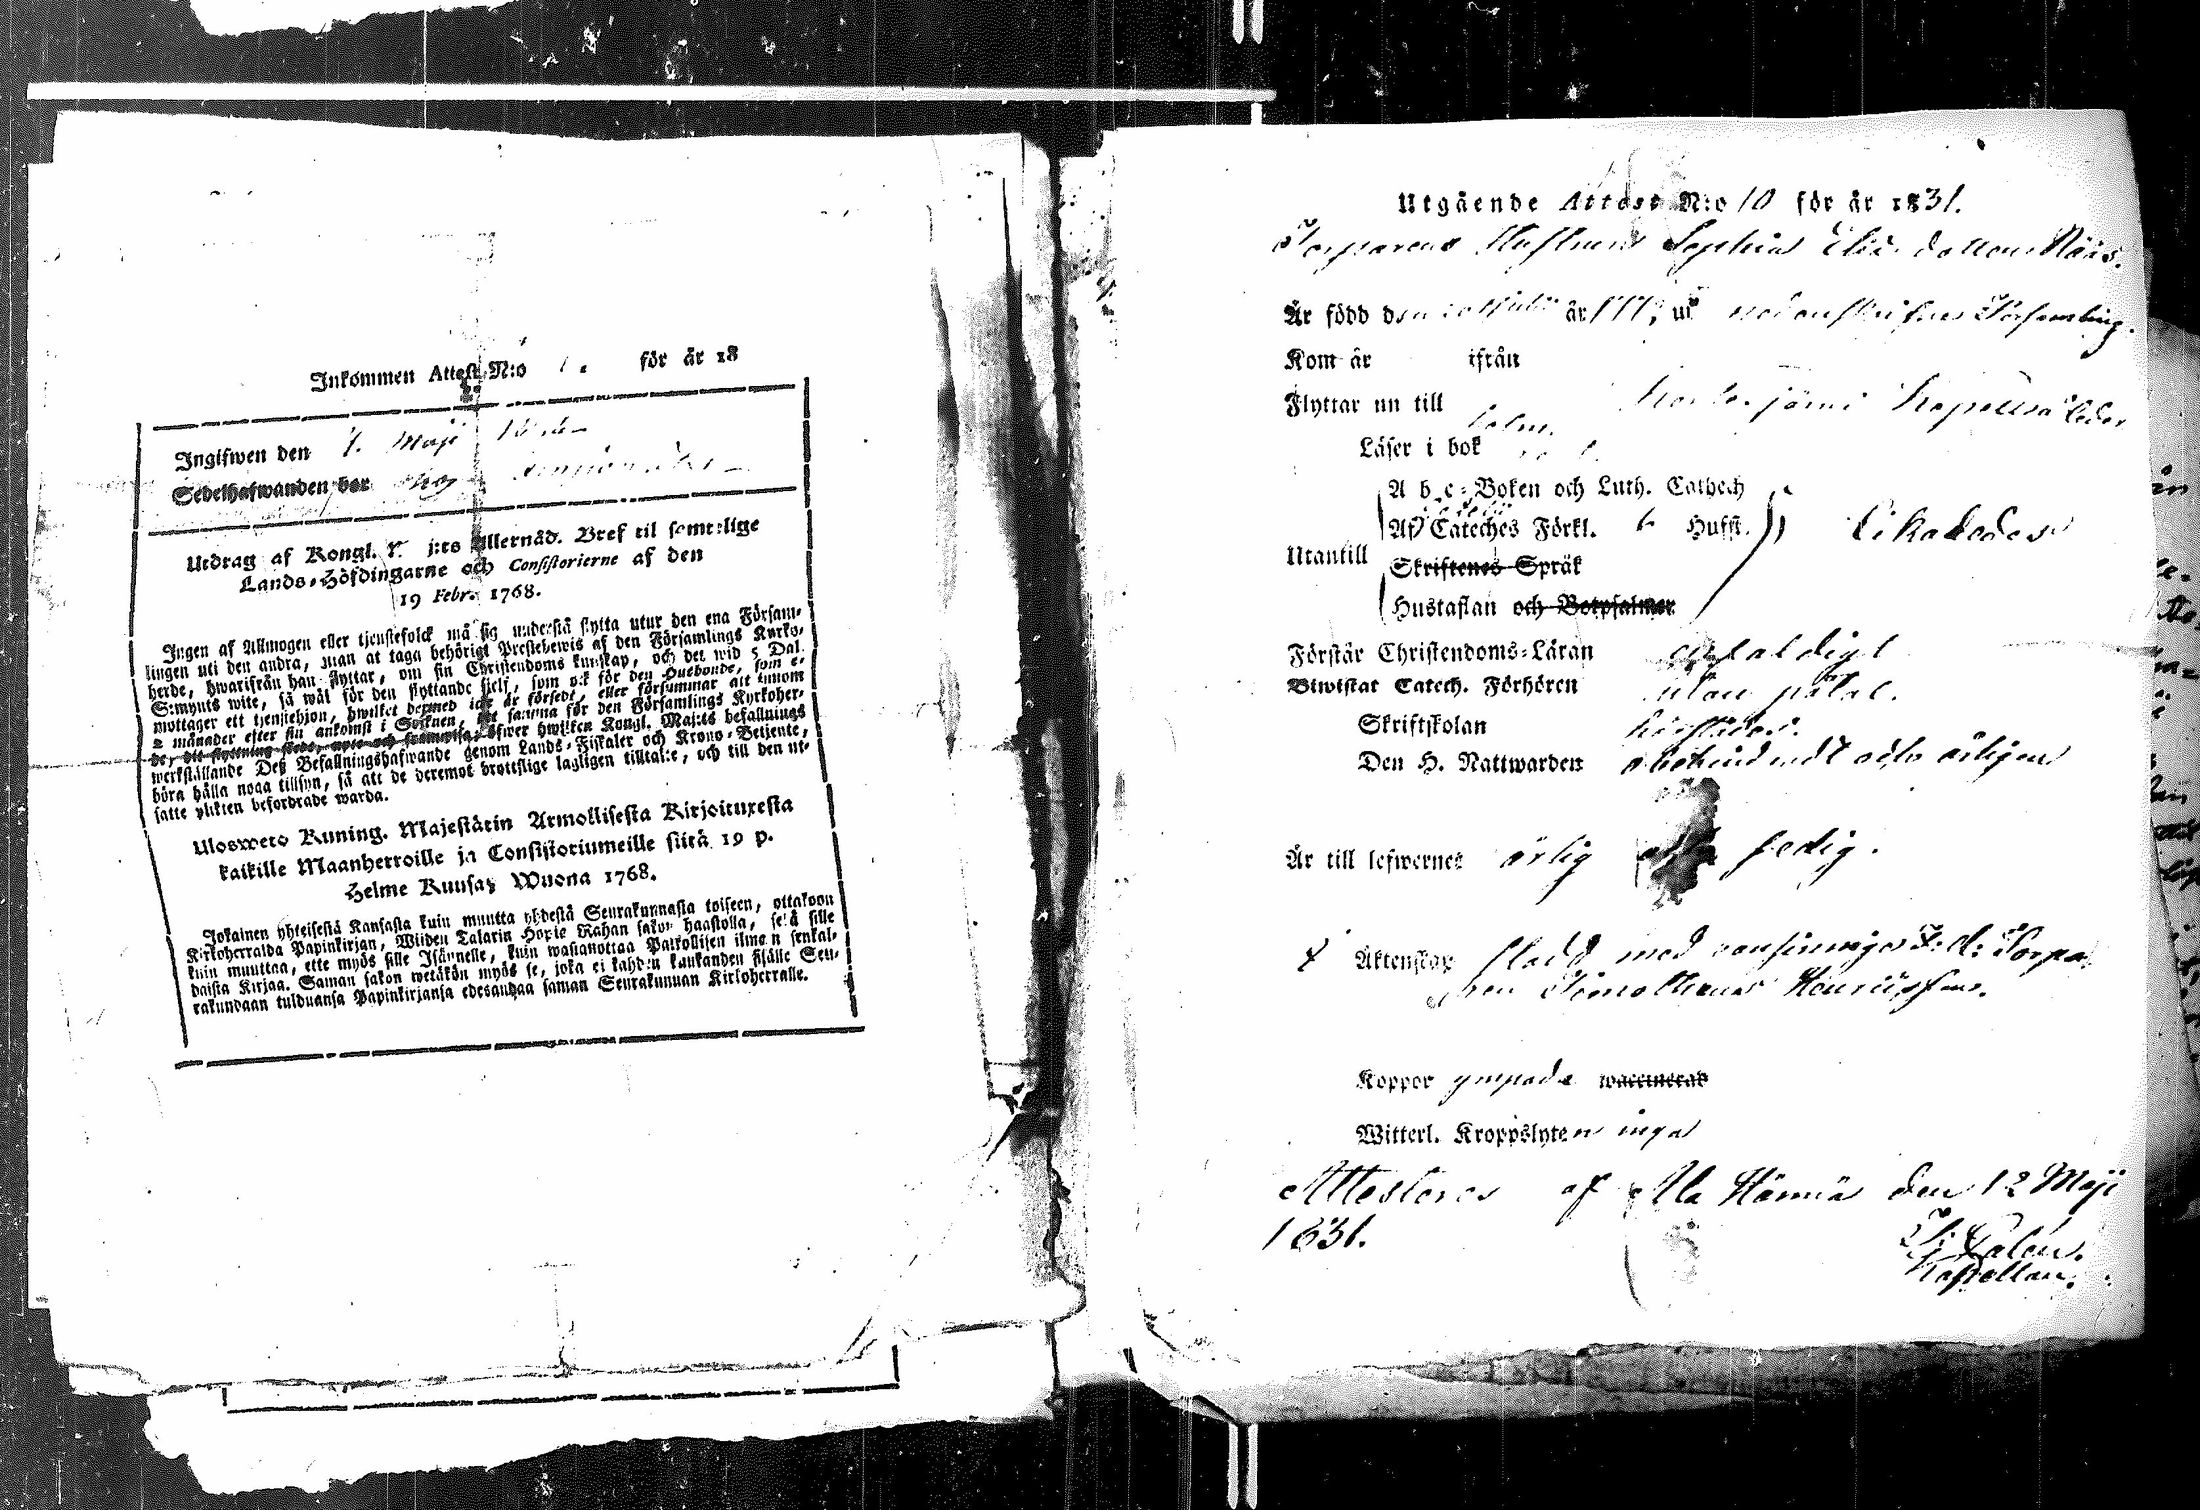 Inkommen Attest N:o 1. för år 18
Ingifwen den 7. Maji
Sedelhafwanden bor
Utdrag af Kongl. j:ts Allernåd. Bref til samtelige
Lands-Höfdingarne och Consistorierne af den
19 Febr. 1768.
Ingen af Allmogen eller tjenstefolck må sig understå flytta utur den ena Försam-
lingen uti den andra, utan at taga behörigt Prestebewis af den Församlings Kyrko-
herde, hwarifrån han flyttar, om sin Christendoms kunskap, och det wid 5 Dal.
S:mynts wite, så wäl för den flyttande sielf, som ock för den Husbonde, som e-
mottager ett tjenstehjon, hwilket dermed icke är försedt, eller försummar att innom
2 månader efter sin ankomst i Socknen, det samma för den Församlings Kyrkoher-
de, dit flyttning skedt, upte och framwisa; öfwer hwilken Kongl. Maj:ts befallnings
werkställande Deß Befallningshafwande genom Lands-Fiskaler och Krono-Betjente,
böra hålla noga tillsyn, så att de deremot brottslige lagligen tilltal:te, och till den ut-
satte plikten befordrade warda.
Ulosweto Kuning. Majestätin Armollisesta Kirjoituxesta
kaikille Maanherroille ja Consistoriumeille siitä 19 p.
Helme Kuusas Wuona 1768.
Jokainen yhteisestä Kansasta kuin muutta yhdestä Seurakunnasta toiseen, ottakoon
Kirkoherralda Papinkirjan, Wiiden Talarin Hopie Rahan sakon haastolla, sekä sille
kuin muuttaa, ette myös sille Isännelle, kuin wastanottaa Palkollisen ilman senkal-
daista Kirjaa. Saman sakon wetäkön myös se, joka ei kahden kuukauden sisälle Seu-
rakundaan tulduansa Papinkirjansa edesandaa saman Seurakunnan Kirkoherralle.
Utgående Attest N:o 10 för år 1831.
Torparens Hustrun Sophia Elis. dotter Näås.
Är född den år ur nedanskrifne Församling.
Kom år ifrån
Flyttar nu till Kapellsa
Läser i bok
A b c-Boken och Luth. Cathech
Af Cateches Förkl. Hufst.
Utantill
likaledes
Skriftenes Språk
Hustaflan och Botpsalmer
Förstår Christendoms-Läran enfaldigt
Biwistat Catech. Förhören utan påtal.
Skriftskolan
Den H. Nattwarden obehindradt och årligen
Är till lefwernet ärlig och fredig.
Äktenskap stadd med Torpa
ren Timotheus Henricsson.
Koppor ympade waccinerad
Witterl. Kroppslyten inga
Attesteras af Ala Härmä den 12 Maji
1831.
Kapellan.